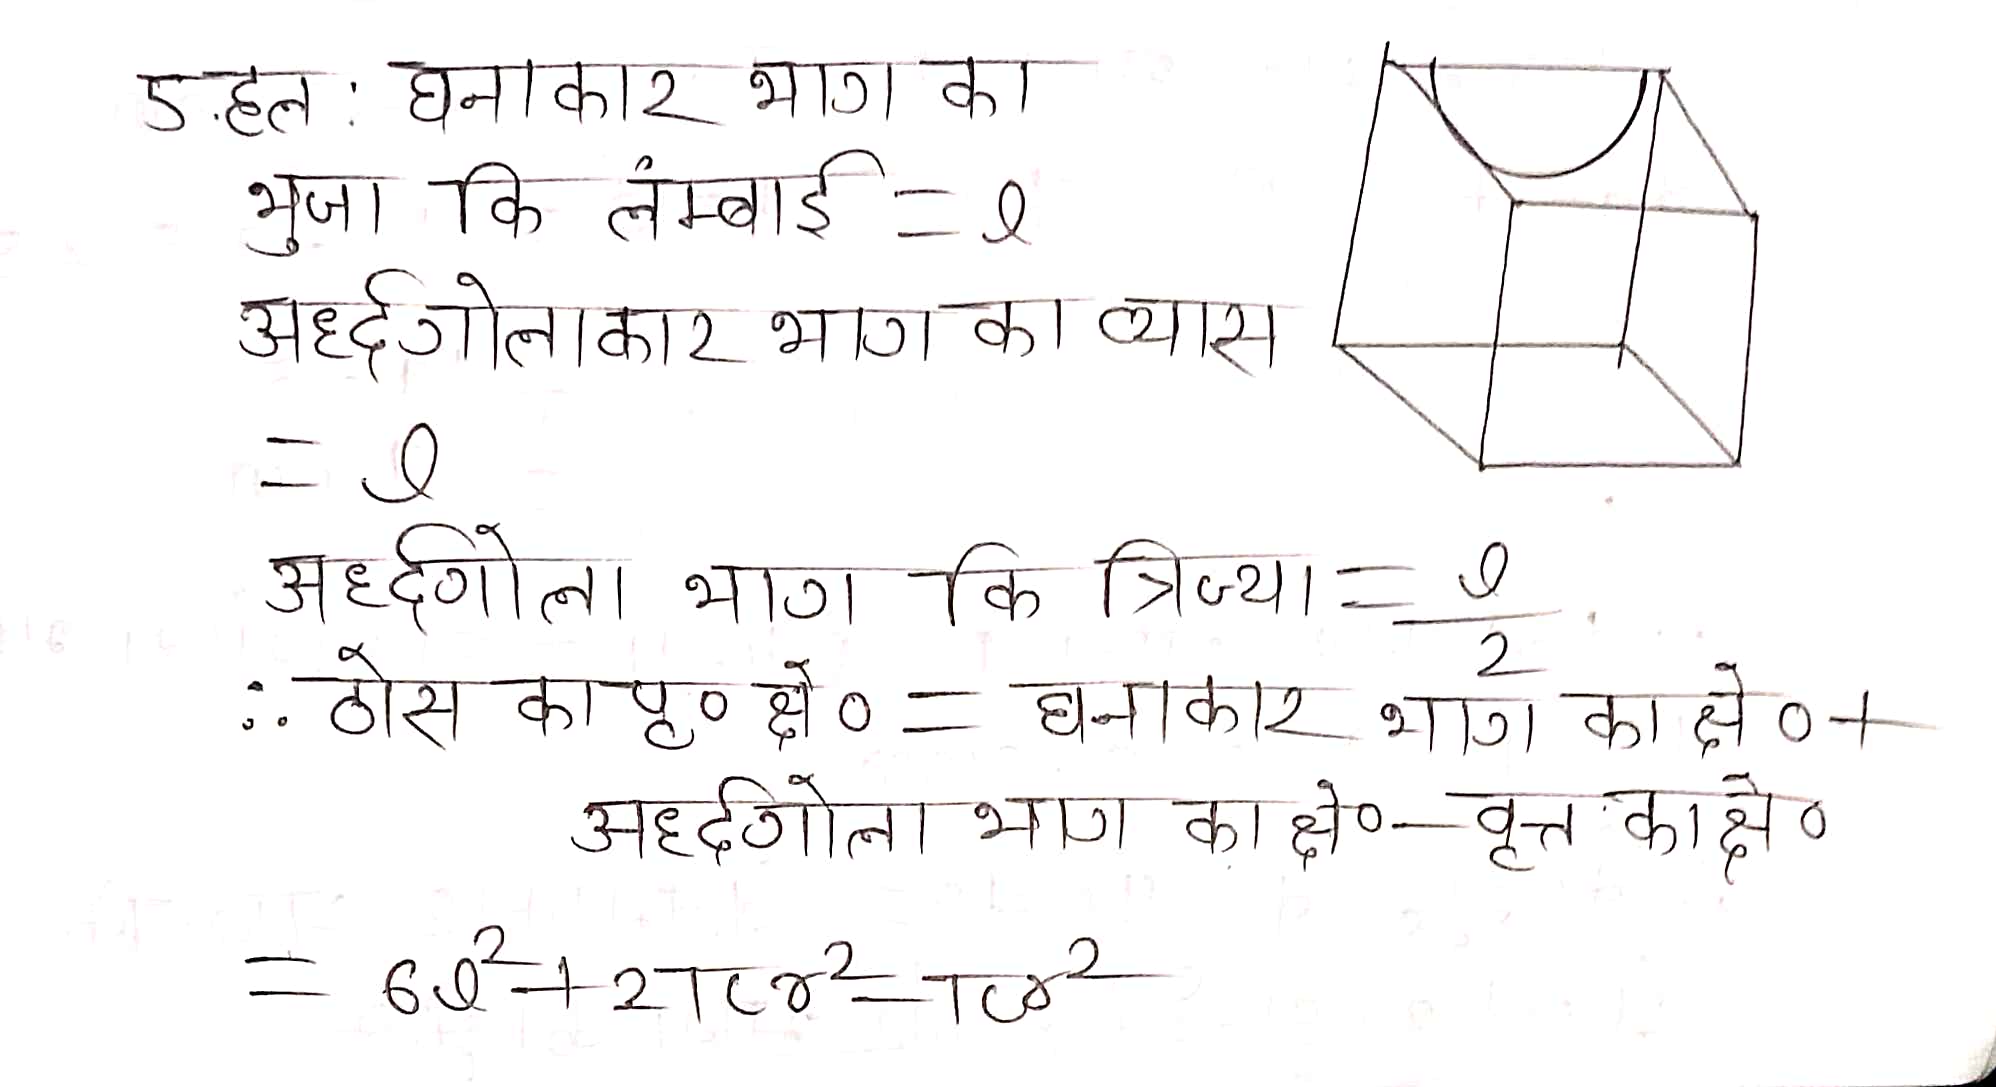 5.हल: घनाकार भाग का
भुजा कि लंम्बाई = l
अर्ध्दगोलाकार भाग का व्यास
= l
अर्ध्दगोला भाग कि त्रिज्या = l/2
∴ ठोस का पृ० क्षे० = घनाकार भाग का क्षे० +
अर्ध्दगोला भाग का क्षे० – वृत्त का क्षे०
= 6l² + 2πr² – πr²